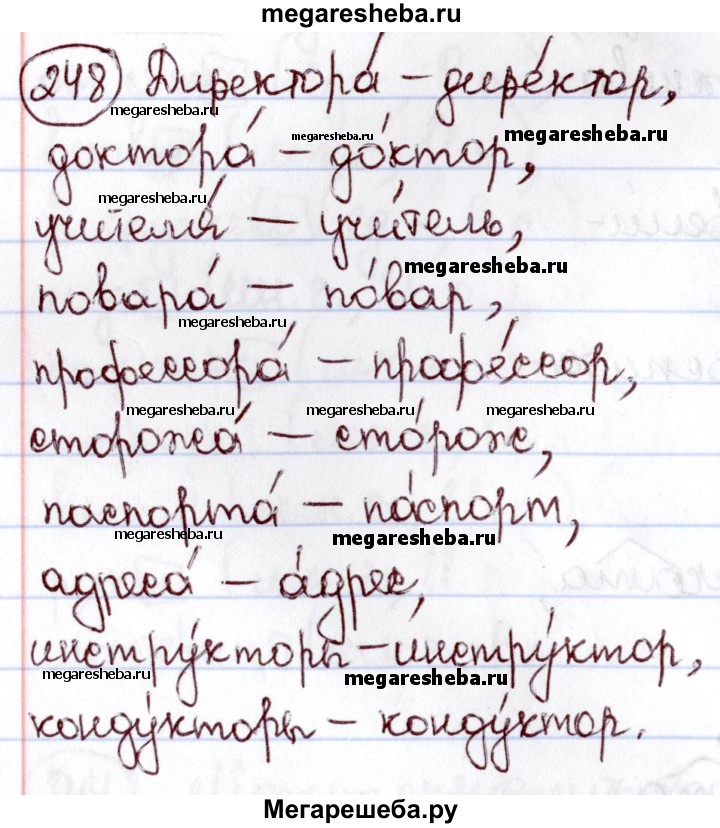 megaresheba.ru
248 Директора́ – дире́ктор,
megaresheba.ru
megaresheba.ru
megaresheba.ru
доктора́ – до́ктор,
megaresheba.ru
учителя́ – учи́тель,
megaresheba.ru
повара́ – по́вар,
megaresheba.ru
профессора́ – профе́ссор,
megaresheba.ru megaresheba.ru megaresheba.ru
сторожа́ – сто́рож,
паспорта́ – па́спорт,
megaresheba.ru megaresheba.ru
адреса́ – а́дрес,
инстру́кторы – инстру́ктор,
megaresheba.ru megaresheba.ru
конду́кторы – конду́ктор.
Мегарешеба.ру